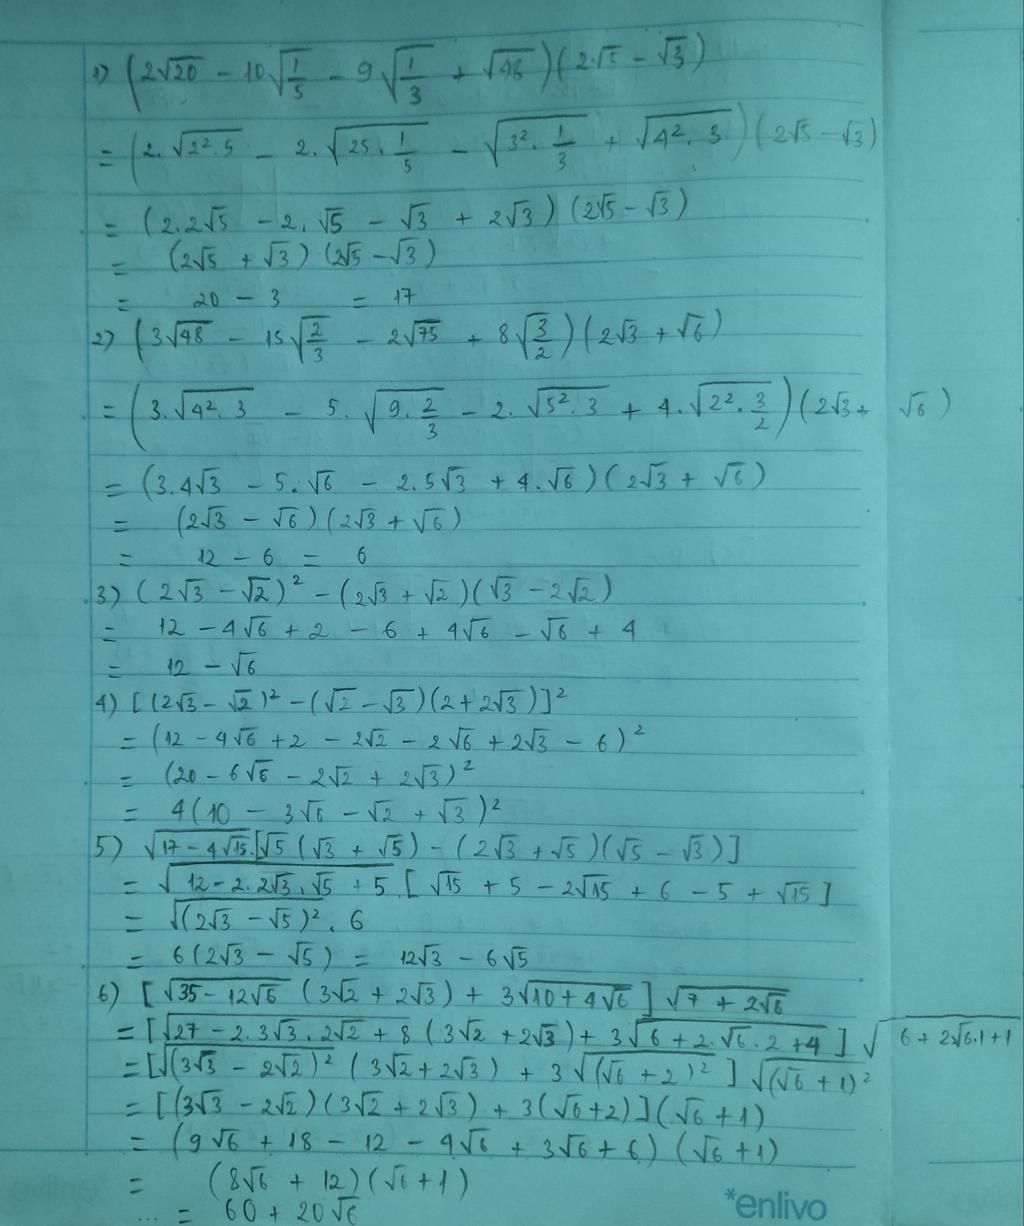 1) (2√20 - 10√(1/5) - 9√(1/3) + √48)(2√5 - √3)
= (2.√(2².5) - 2.√(25.1/5) - √(3².1/3) + √(4².3))(2√5 - √3)
= (2.2√5 - 2.√5 - √3 + 2√3)(2√5 - √3)
= (2√5 + √3)(2√5 - √3)
= 20 - 3 = 17
2) (3√48 - 15√(2/3) - 2√75 + 8√(3/2))(2√3 + √6)
= (3.√(4².3) - 5.√(9.2/3) - 2.√(5².3) + 4.√(2².3/2))(2√3 + √6)
= (3.4√3 - 5.√6 - 2.5√3 + 4.√6)(2√3 + √6)
= (2√3 - √6)(2√3 + √6)
= 12 - 6 = 6
3) (2√3 - √2)² - (2√3 + √2)(√3 - 2√2)
= 12 - 4√6 + 2 - 6 + 4√6 - √6 + 4
= 12 - √6
4) [(2√3 - √2)² - (√2 - √3)(2 + 2√3)]²
= (12 - 4√6 + 2 - 2√2 - 2√6 + 2√3 - 6)²
= (20 - 6√6 - 2√2 + 2√3)²
= 4(10 - 3√6 - √2 + √3)²
5) √(17 - 4√15).[√5(√3 + √5) - (2√3 + √5)(√5 - √3)]
= √(12 - 2.2√3.√5 + 5).[√15 + 5 - 2√15 + 6 - 5 + √15]
= √((2√3 - √5)²).6
= 6(2√3 - √5) = 12√3 - 6√5
6) [√(35 - 12√6)(3√2 + 2√3) + 3√(10 + 4√6)]√(7 + 2√6)
= [√(27 - 2.3√3.2√2 + 8)(3√2 + 2√3) + 3√(6 + 2.√6.2 + 4)]√(6 + 2√6.1 + 1)
= [√((3√3 - 2√2)²)(3√2 + 2√3) + 3√((√6 + 2)²)]√((√6 + 1)²)
= [(3√3 - 2√2)(3√2 + 2√3) + 3(√6 + 2)](√6 + 1)
= (9√6 + 18 - 12 - 4√6 + 3√6 + 6)(√6 + 1)
= (8√6 + 12)(√6 + 1)
... = 60 + 20√6
*enlivo